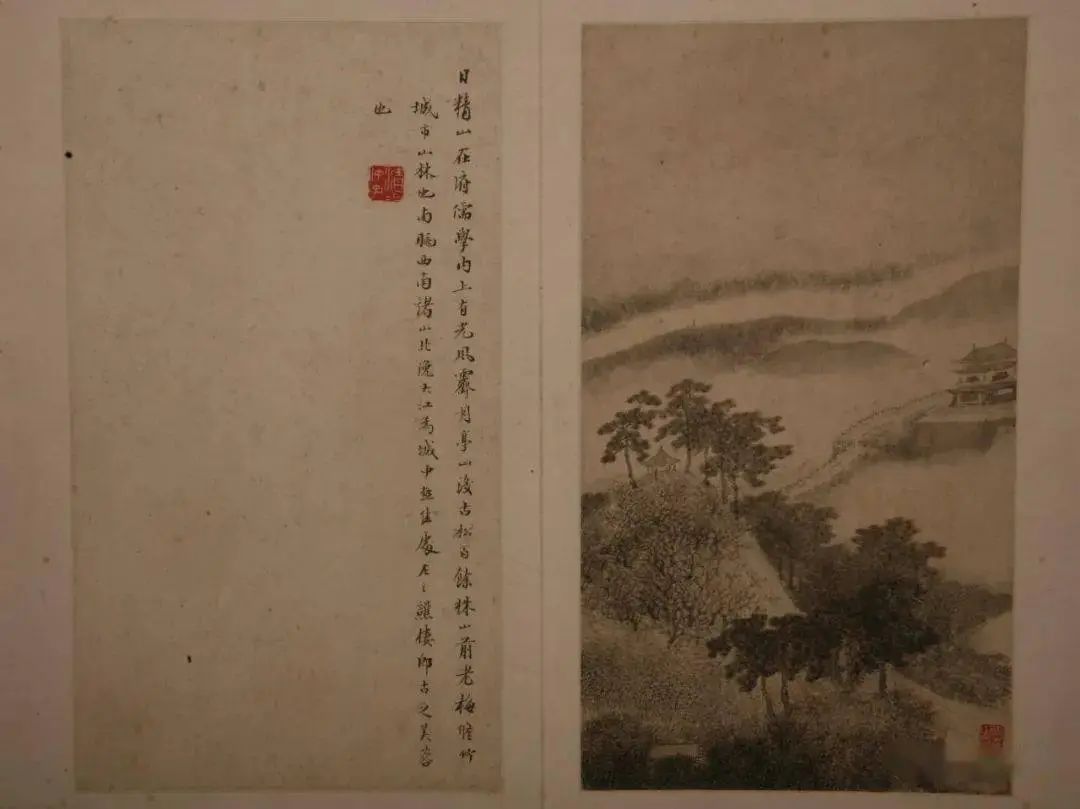 日精山在府儒學內上有光風霽月亭山後古松百餘株山前老梅脩竹
城市山林也南眺西南諸山北俛大江為城中極佳處左之譙樓即古之芙蓉
也